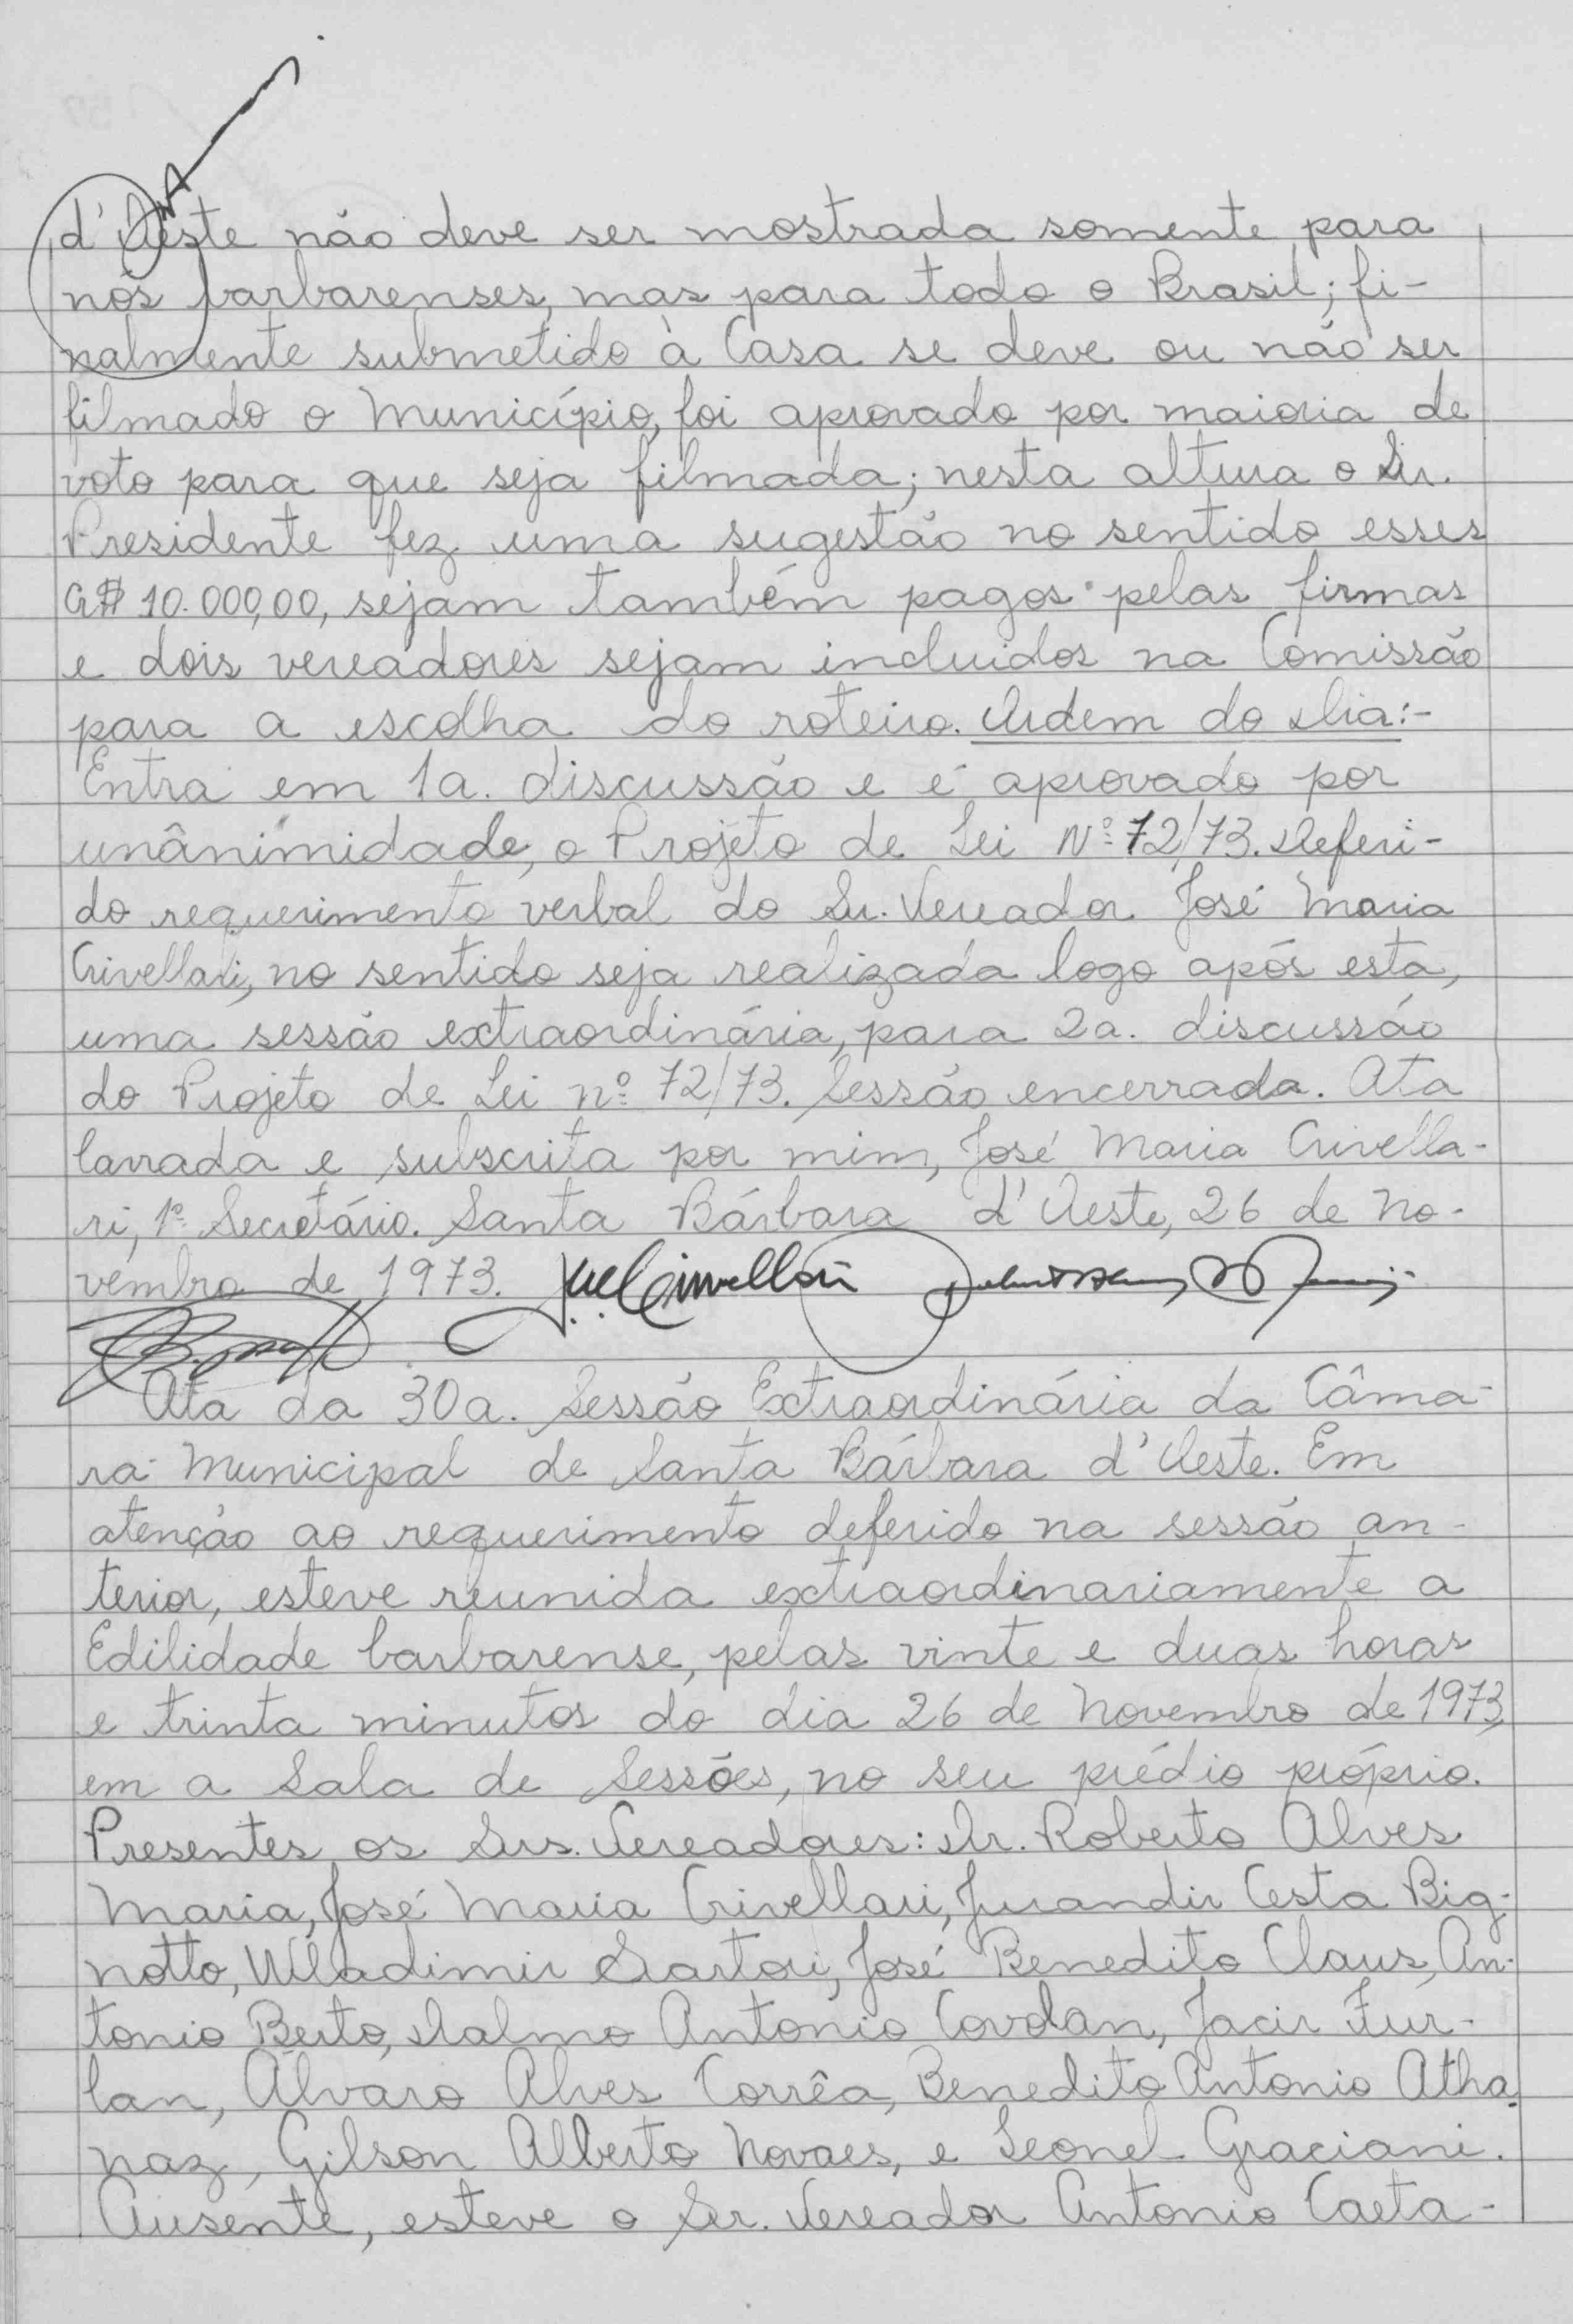 d'Oeste não deve ser mostrada somente para
nós barbarenses, mas para todo o Brasil; fi-
nalmente submetido à Casa se deve ou não ser
filmado o Município, foi aprovado por maioria de
voto para que seja filmada; nesta altura o Sr.
Presidente fez uma sugestão no sentido esses
Cr$ 10.000,00, sejam também pagos pelas firmas
e dois vereadores sejam incluidos na Comissão
para a escolha do roteiro. Ordem do Dia:-
Entra em 1a. discussão e é aprovado por
unânimidade, o Projeto de Lei Nº 72/73. Deferi-
do requerimento verbal do Sr. Vereador José Maria
Crivellari, no sentido seja realizada logo após esta,
uma sessão extraordinária, para 2a. discussão
do Projeto de Lei nº 72/73. Sessão encerrada. Ata
lavrada e subscrita por mim, José Maria Crivella-
ri, 1º Secretário. Santa Bárbara d'Oeste, 26 de no-
vembro de 1973. Crivellari
Ata da 30a. Sessão Extraordinária da Câma-
ra Municipal de Santa Bárbara d'Oeste. Em
atenção ao requerimento deferido na sessão an-
terior, esteve reunida extraordinariamente a
Edilidade barbarense, pelas vinte e duas horas
e trinta minutos do dia 26 de novembro de 1973,
em a Sala de Sessões, no seu prédio próprio.
Presentes os Srs. Vereadores: Dr. Roberto Alves
Maria, José Maria Crivellari, Jurandir Cesta Big-
notto, Wladimir Sartori, José Benedito Claus, An-
tonio Berto, Dalmo Antonio Covolan, Jacir Fur-
lan, Álvaro Alves Corrêa, Benedito Antonio Atha-
naz, Gilson Alberto Novaes, e Leonel Graciani.
Ausente, esteve o Sr. Vereador Antonio Caeta-